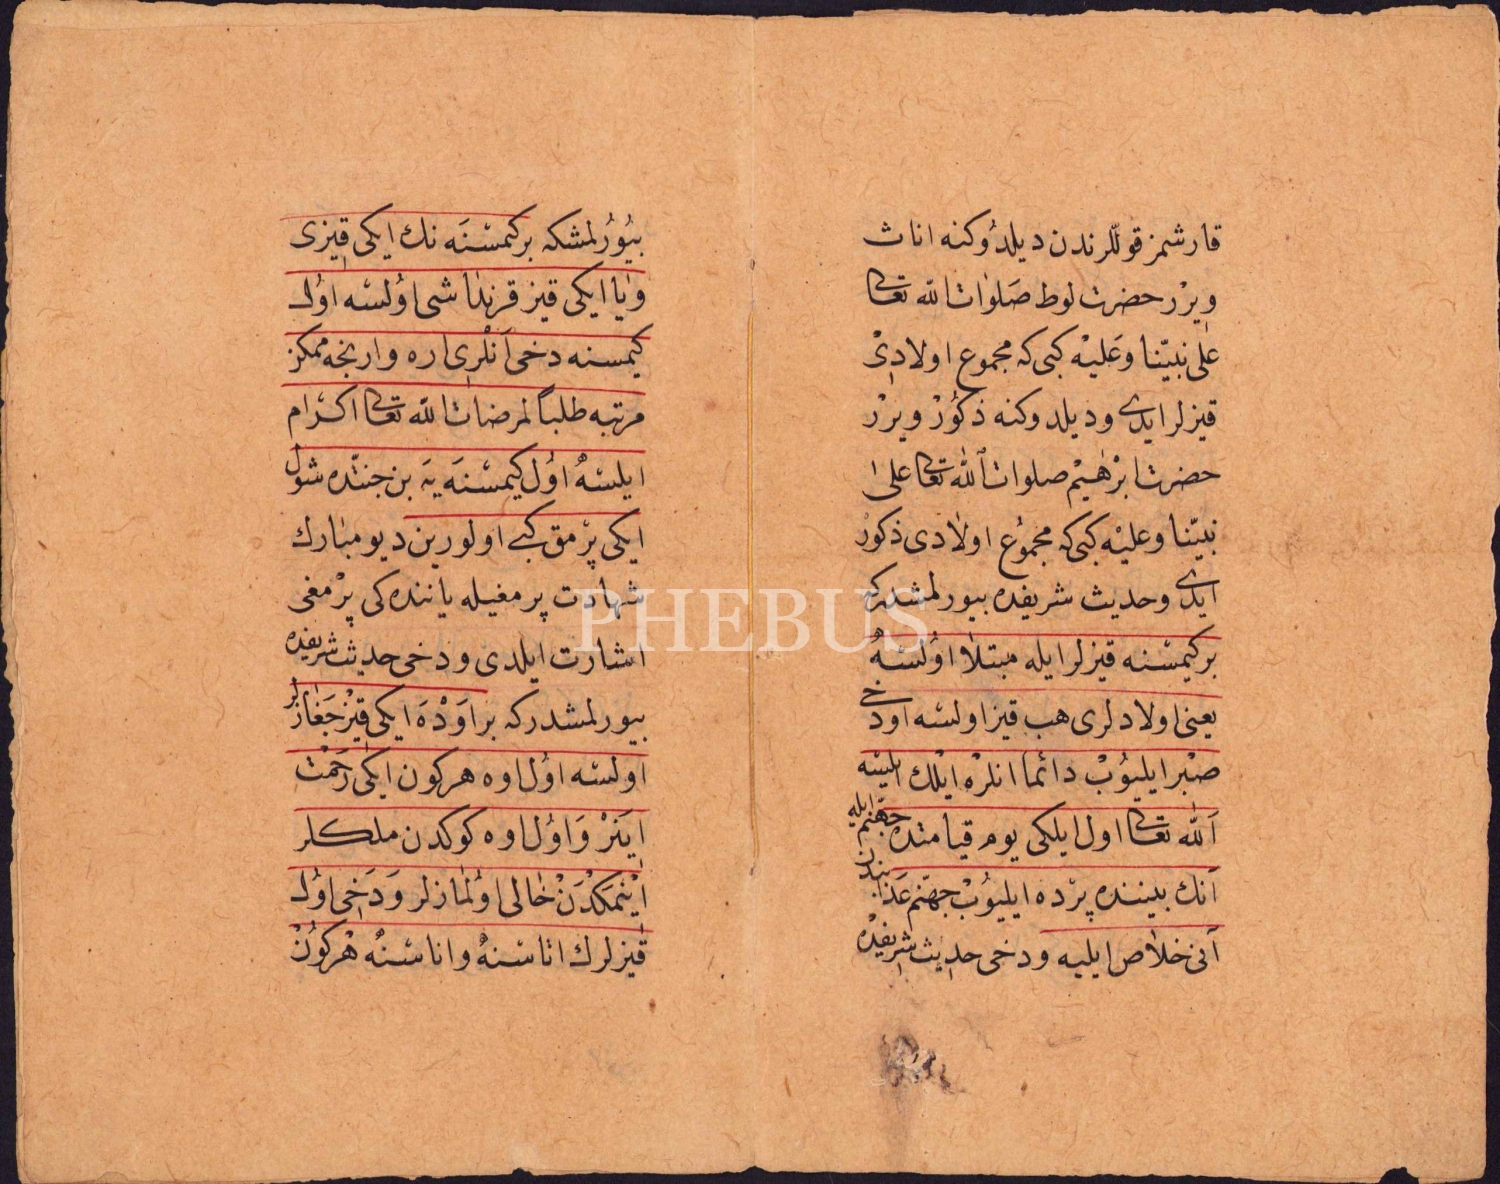 قارشمز قوللرندن ديلدوكنه اناث
ويرر حضرت لوط صلوات الله تعالى
على نبيّنا وعليه كبى كه مجموع اولادى
قيزلر ايدى و ديلدوكنه ذكور ويرر
حضرت ابرٰهيم صلوات الله تعالى على
نبيّنا وعليه كبى كه مجموع اولادى ذكور
ايدى وحديث شريفده بيورلمشدركه
بر كيمسنه قيزلر ايله مبتلا اولسه
يعنى اولادلرى هب قيز اولسه او دخى
صبر ايليوب دائما انلره ايلك ايلسه
الله تعالى اول ايلكى يوم قيامتده جهنّم ايله
آنك بيننده پرده ايليوب جهنّم عذابندن
آنى خلاص ايليه و دخى حديث شريفده
بيورلمشكه بر كيمسنه نك ايكى قيزى
ويا ايكى قيز قرنداشى اولسه اول
كيمسنه دخى آنلرى اره وارنجه ممكن
مرتبه طلباً لمرضات الله تعالى اكرام
ايلسه اول كيمسنه يه بن جنتده شول
ايكى پرمق كبى اولورين ديو مبارك
شهادت پرمغيله ياننده كى پرمغى
اشارت ايلدى و دخى حديث شريفده
بيورلمشدركه بر اوده ايكى قيزجغازلر
اولسه اول اوه هر كون ايكى رحمت
اينر و اول اوه كوكدن ملكلر
اينمكدن خالى اولمازلر و دخى اول
قيزلرك اتاسنه و اناسنه هر كون
PHEBUS